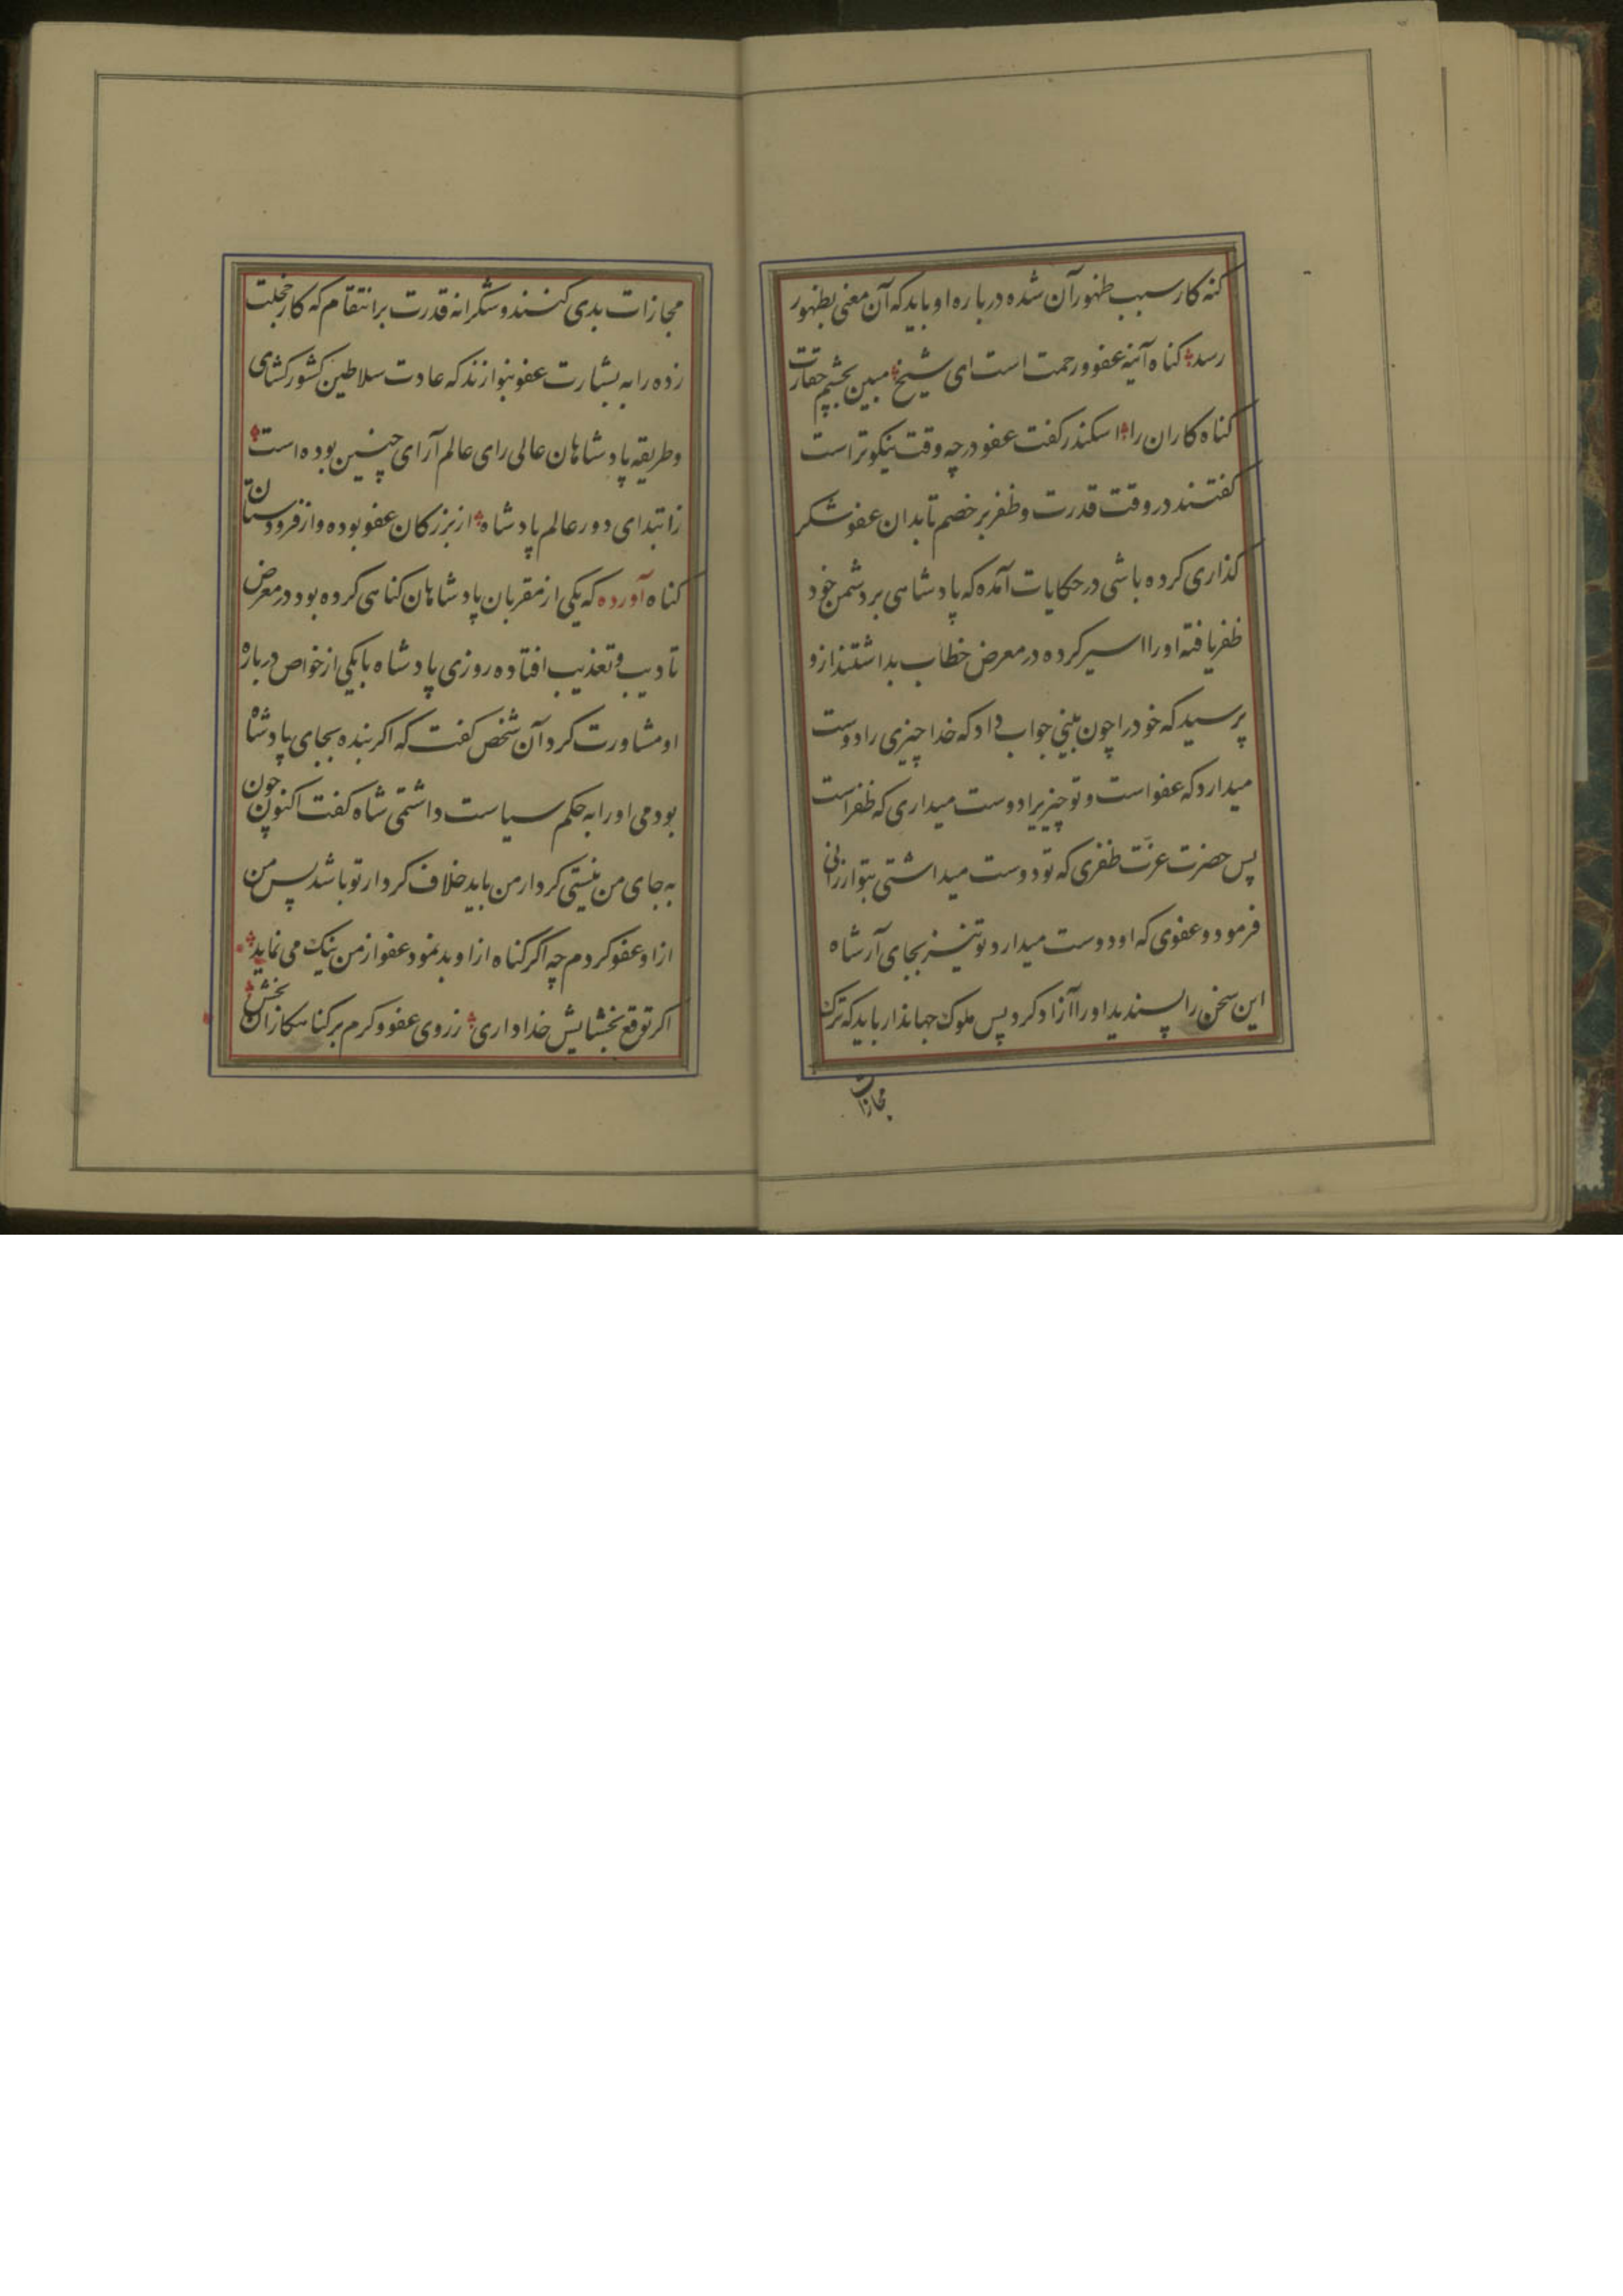 کنه کار سبب ظهور آن شده درباره او باید که آن معنی بظهور
رسد کناه آینه عفو و رحمت است ای شیخ مبین بچشم حقارت
کناه کاران را اسکندر کفت عفو در چه وقت نیکوتر است
کفتند در وقت قدرت و ظفر بر خصم تا بدان عفو شکر
کذاری کرده باشی در حکایات آمده که پادشاهی بر دشمن خود
ظفر یافته او را اسیر کرده در معرض خطاب بداشتند ازو
پرسید که خود را چون بینی جواب داد که خدا چیزی را دوست
میدارد که عفو است و تو چیزیرا دوست میداری که ظفر است
پس حضرت عزت ظفری که تو دوست میداشتی بتو ارزانی
فرمود و عفوی که او دوست میدارد تو نیز بجای آر شاه
این سخن را پسندید او را آزاد کرد پس ملوک جهاندار باید که ترک
مجازات
مجازات بدی کنند و شکرانه قدرت بر انتقام کار خجلت
زده را به بشارت عفو بنوازند که عادت سلاطین کشور کشای
و طریقه پادشاهان عالی رای عالم آرای چنین بوده است
زابتدای دور عالم پادشاه از بزرکان عفو بوده و از فرودستان
کناه آورده که یکی از مقربان پادشاهان کناهی کرده بود در معرض
تادیب و تعذیب افتاده روزی پادشاه با یکی از خواص درباره
او مشاورت کرد آن شخص کفت که اکر بنده بجای پادشاه
بودمی او را به حکم سیاست داشتمی شاه کفت اکنون چون
به جای من نیستی کردار من باید خلاف کردار تو باشد پس من
از او عفو کردم چه اکر کناه از او بد نمود عفو از من نیک می نماید
اکر توقع بخشایش خدا داری ز روی عفو و کرم بر کناهکاران بخش